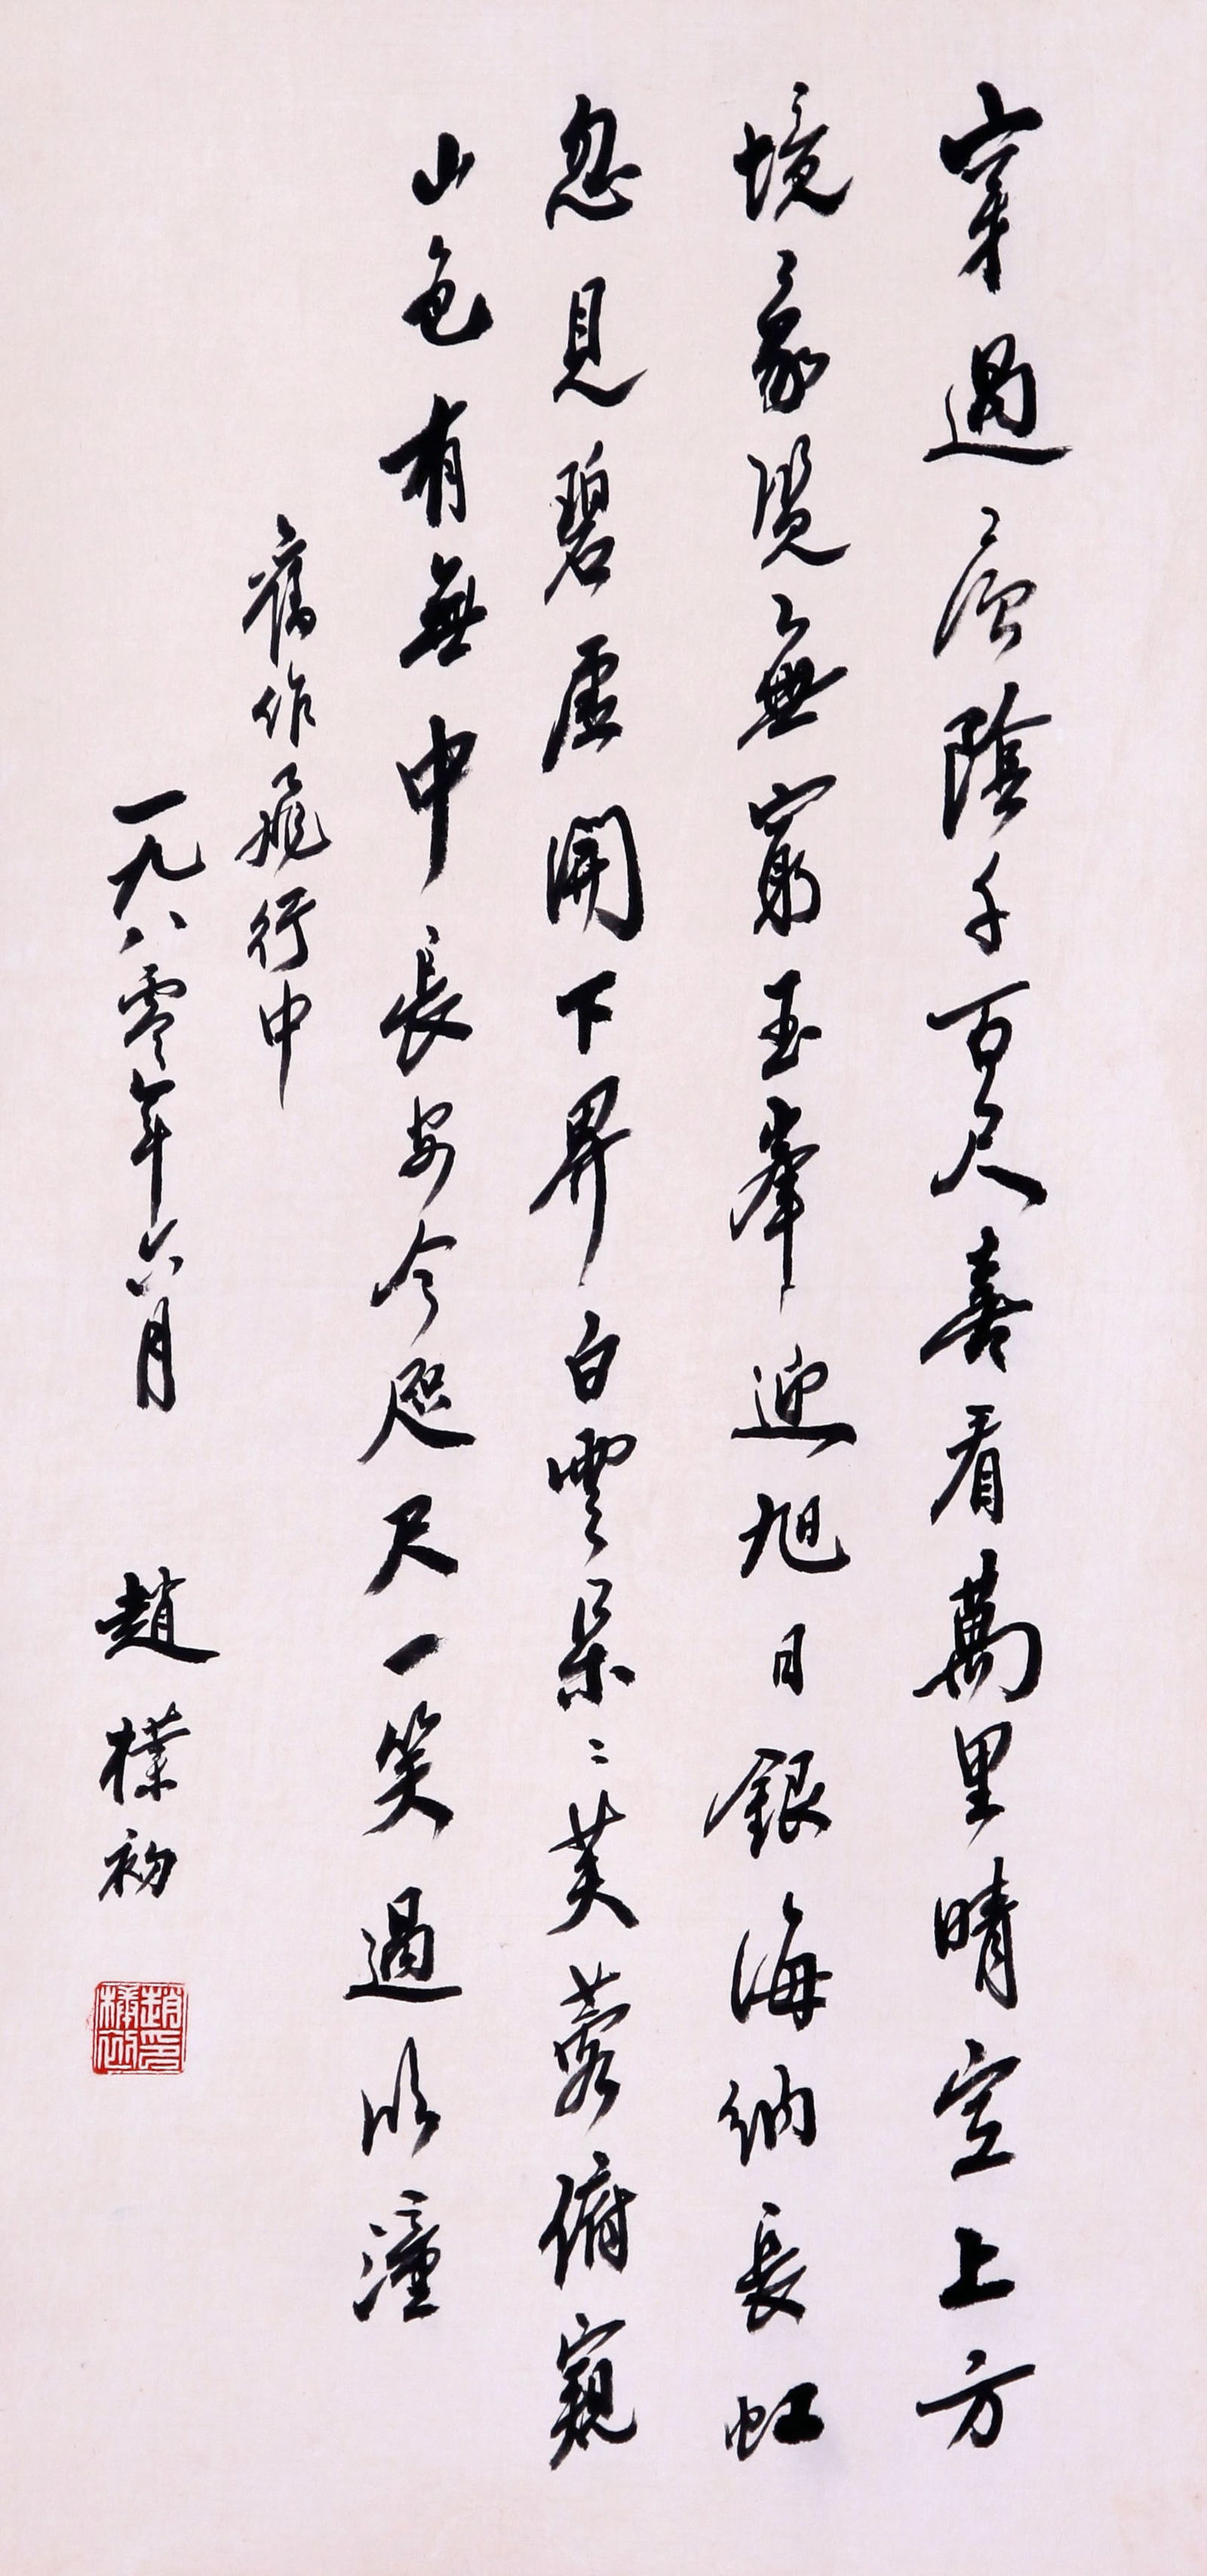 穿過層陰千百尺喜看萬里晴空上方
境象覽無窮玉峯迎旭日銀海納長虹
忽見碧虛開下界白雲朵〻芙蓉俯窺
山色有無中長安今咫尺一笑過臨潼
舊作飛行中
一九八零年六月 趙樸初
趙樸初印